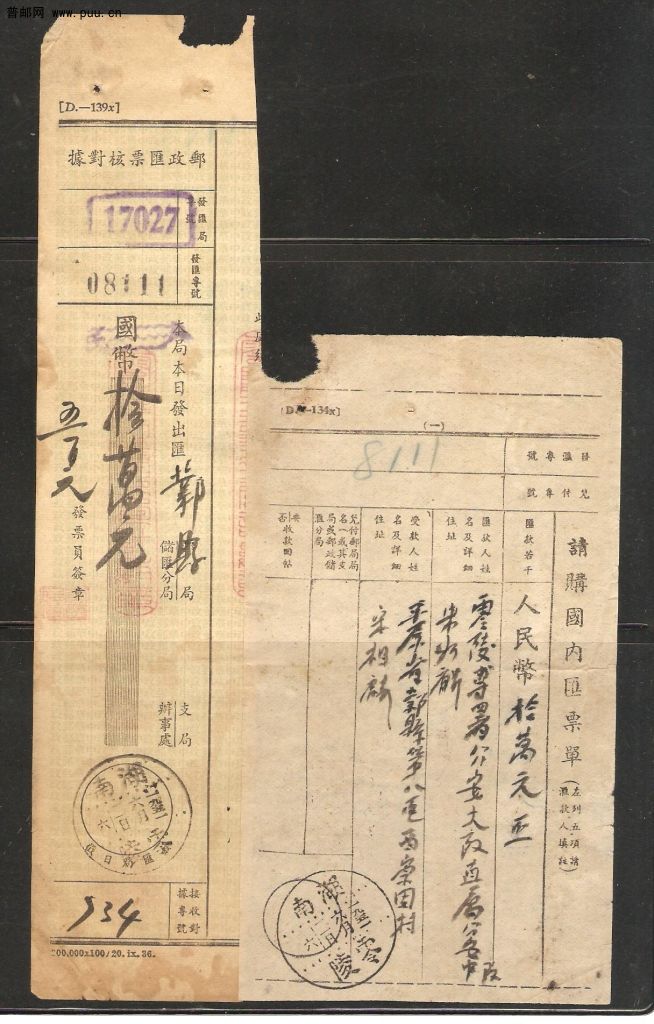 普邮网 www.puu.cn
[D.—139x]
據對核票匯政郵
發匯局
專號
17027
發匯專號
08111
本局本日發出匯
鄆縣
局
儲匯分局
支局
辦事處
國幣拾萬元
五百元
發票員簽章
湖南
六
接收對
據專號
934
00,000x100/20.ix.36.
[D.—134x]
(一)
8111
號專滙目
號專付兌
請購國內匯票單
(左列五項請
滙款人填註)
匯款若干
人民幣拾萬元正
匯款人姓
名及詳細
住址
零陵專署公安大隊直屬公安中隊
宋水麟
受款人姓
名及詳細
住址
平原省鄆縣第八區
宋相麟
兌付郵局局
名一或其支
局或郵政儲
滙分局
要
否收款回帖
湖南
零陵